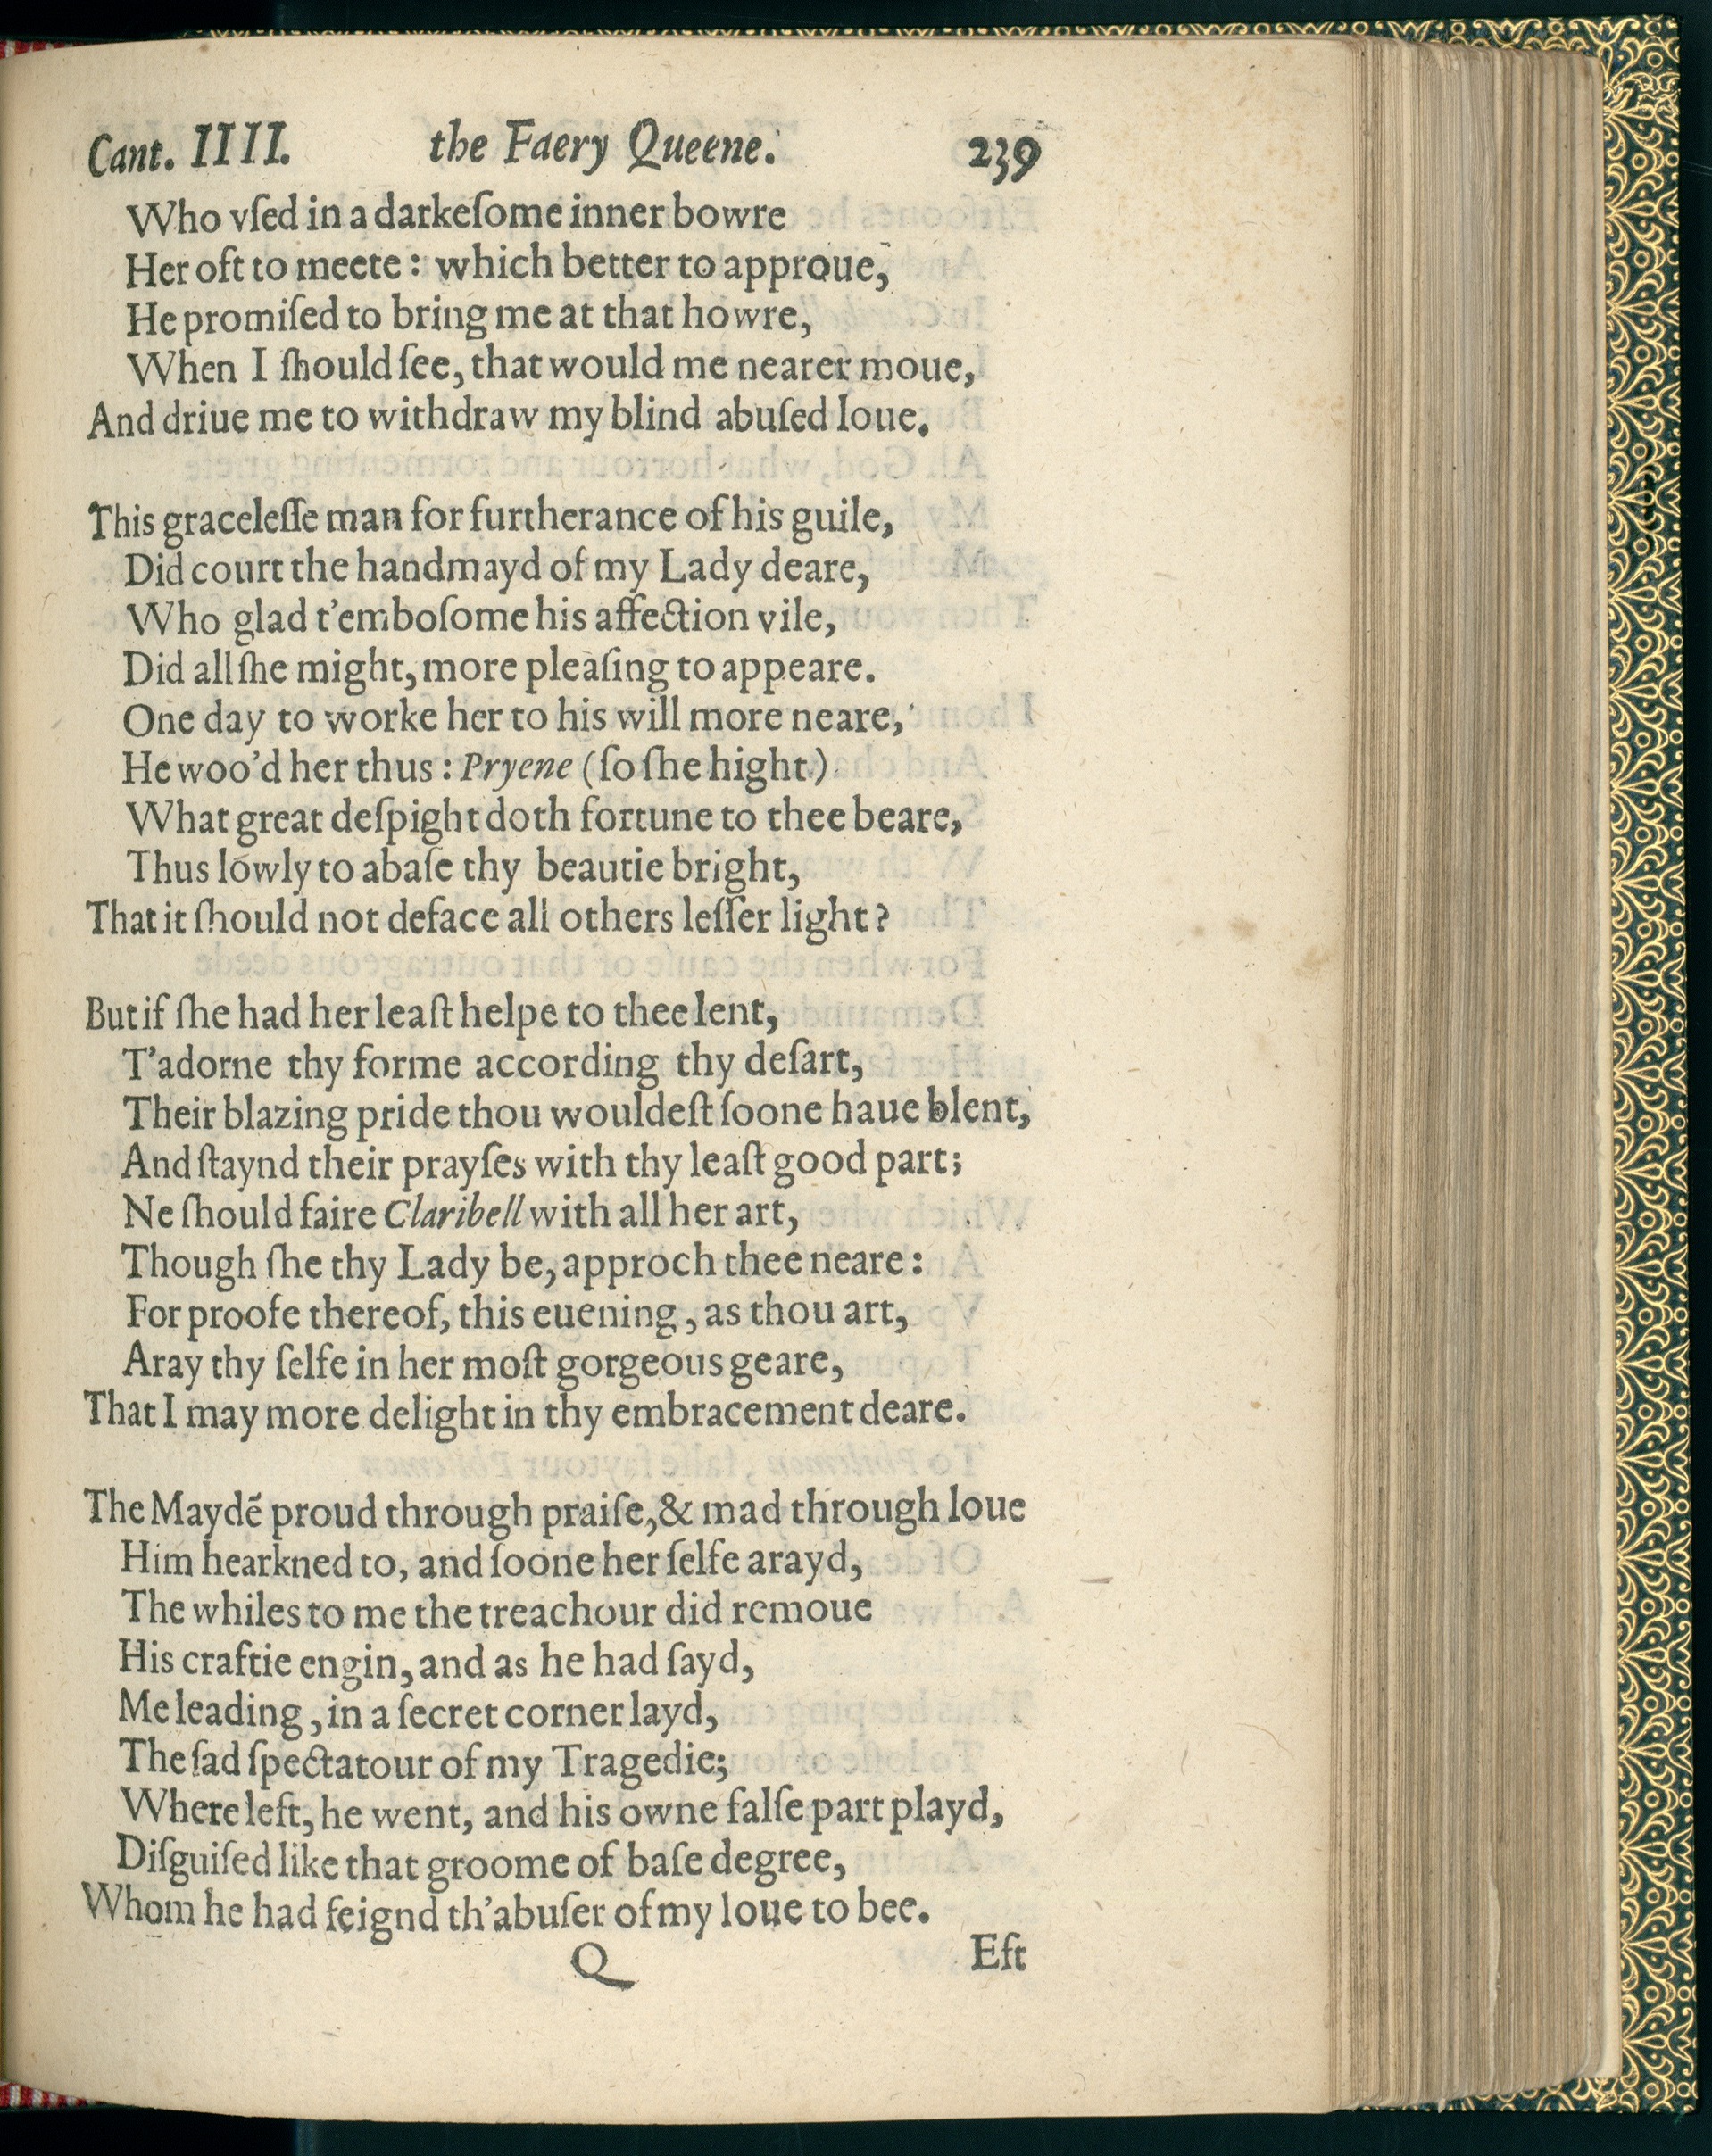 Cant. IIII. the Faery Queene. 239
Who vſed in a darkeſome inner bowre
Her oft to meete: which better to approue,
He promiſed to bring me at that howre,
When I ſhould ſee, that would me nearer moue,
And driue me to withdraw my blind abuſed loue.
This graceleſſe man for furtherance of his guile,
Did court the handmayd of my Lady deare,
Who glad t'emboſome his affection vile,
Did all ſhe might, more pleaſing to appeare.
One day to worke her to his will more neare,
He woo'd her thus: Pryene (ſo ſhe hight)
What great deſpight doth fortune to thee beare,
Thus lowly to abaſe thy beautie bright,
That it ſhould not deface all others leſſer light?
But if ſhe had her leaſt helpe to thee lent,
T'adorne thy forme according thy deſart,
Their blazing pride thou wouldeſt ſoone haue blent,
And ſtaynd their prayſes with thy leaſt good part;
Ne ſhould faire Claribell with all her art,
Though ſhe thy Lady be, approch thee neare:
For proofe thereof, this euening, as thou art,
Aray thy ſelfe in her moſt gorgeous geare,
That I may more delight in thy embracement deare.
The Maydẽ proud through praiſe, & mad through loue
Him hearkned to, and ſoone her ſelfe arayd,
The whiles to me the treachour did remoue
His craftie engin, and as he had ſayd,
Me leading, in a ſecret corner layd,
The ſad ſpectatour of my Tragedie;
Where left, he went, and his owne falſe part playd,
Diſguiſed like that groome of baſe degree,
Whom he had feignd th'abuſer of my loue to bee.
Q Eft